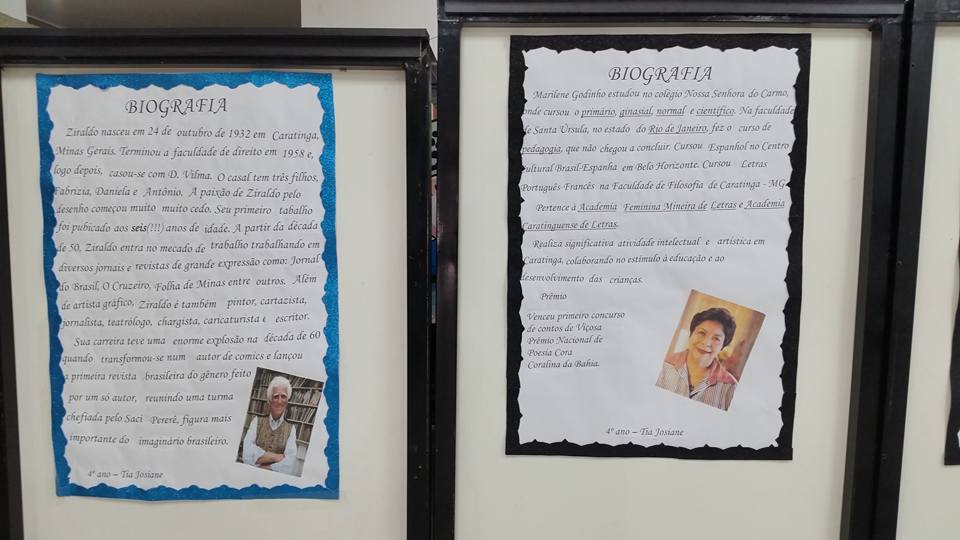 BIOGRAFIA
Ziraldo nasceu em 24 de outubro de 1932 em Caratinga,
Minas Gerais. Terminou a faculdade de direito em 1958 e,
logo depois, casou-se com D. Vilma. O casal tem três filhos,
Fabrizia, Daniela e Antônio. A paixão de Ziraldo pelo
desenho começou muito muito cedo. Seu primeiro tabalho
foi pubicado aos seis(!!!) anos de idade. A partir da década
de 50, Ziraldo entra no mecado de trabalho trabalhando em
diversos jornais e revistas de grande expressão como: Jornal
do Brasil, O Cruzeiro, Folha de Minas entre outros. Além
de artista gráfico, Ziraldo é também pintor, cartazista,
jornalista, teatrólogo, chargista, caricaturista e escritor.
Sua carreira teve uma enorme explosão na década de 60
quando transformou-se num autor de comics e lançou
a primeira revista brasileira do gênero feito
por um só autor, reunindo uma turma
chefiada pelo Saci Pererê, figura mais
importante do imaginário brasileiro.
4º ano – Tia Josiane
BIOGRAFIA
Marilene Godinho estudou no colégio Nossa Senhora do Carmo,
onde cursou o primário, ginasial, normal e científico. Na faculdade
de Santa Úrsula, no estado do Rio de Janeiro, fez o curso de
pedagogia, que não chegou a concluir. Cursou Espanhol no Centro
ultural Brasil-Espanha em Belo Horizonte. Cursou Letras
Português-Francês na Faculdade de Filosofia de Caratinga - MG
Pertence à Academia Feminina Mineira de Letras e Academia
Caratinguense de Letras.
Realiza significativa atividade intelectual e artística em
Caratinga, colaborando no estímulo à educação e ao
desenvolvimento das crianças.
Prêmio
Venceu primeiro concurso
de contos de Viçosa
Prêmio Nacional de
Poesia Cora
Coralina da Bahia.
4º ano – Tia Josiane